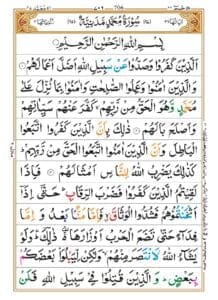 706
سُوْرَةُ مُحَمَّدٍ مَّدَنِيَّةٌ
بِسْمِ اللّٰهِ الرَّحْمٰنِ الرَّحِيْمِ
اَلَّذِيْنَ كَفَرُوْا وَصَدُّوْا عَنْ سَبِيْلِ اللّٰهِ اَضَلَّ اَعْمَالَهُمْ
وَالَّذِيْنَ اٰمَنُوْا وَعَمِلُوا الصّٰلِحٰتِ وَاٰمَنُوْا بِمَا نُزِّلَ عَلٰى
مُحَمَّدٍ وَّهُوَ الْحَقُّ مِنْ رَّبِّهِمْ كَفَّرَ عَنْهُمْ سَيِّاٰتِهِمْ
وَاَصْلَحَ بَالَهُمْ ذٰلِكَ بِاَنَّ الَّذِيْنَ كَفَرُوا اتَّبَعُوا
الْبَاطِلَ وَاَنَّ الَّذِيْنَ اٰمَنُوا اتَّبَعُوا الْحَقَّ مِنْ رَّبِّهِمْ
كَذٰلِكَ يَضْرِبُ اللّٰهُ لِلنَّاسِ اَمْثَالَهُمْ فَاِذَا
لَقِيْتُمُ الَّذِيْنَ كَفَرُوْا فَضَرْبَ الرِّقَابِ حَتّٰى اِذَا
اَثْخَنْتُمُوْهُمْ فَشُدُّوا الْوَثَاقَ فَاِمَّا مَنًّا بَعْدُ وَاِمَّا
فِدَآءً حَتّٰى تَضَعَ الْحَرْبُ اَوْزَارَهَا ذٰلِكَ وَلَوْ
يَشَآءُ اللّٰهُ لَانْتَصَرَ مِنْهُمْ وَلٰكِنْ لِّيَبْلُوَا بَعْضَكُمْ
بِبَعْضٍ وَالَّذِيْنَ قُتِلُوْا فِيْ سَبِيْلِ اللّٰهِ فَلَنْ